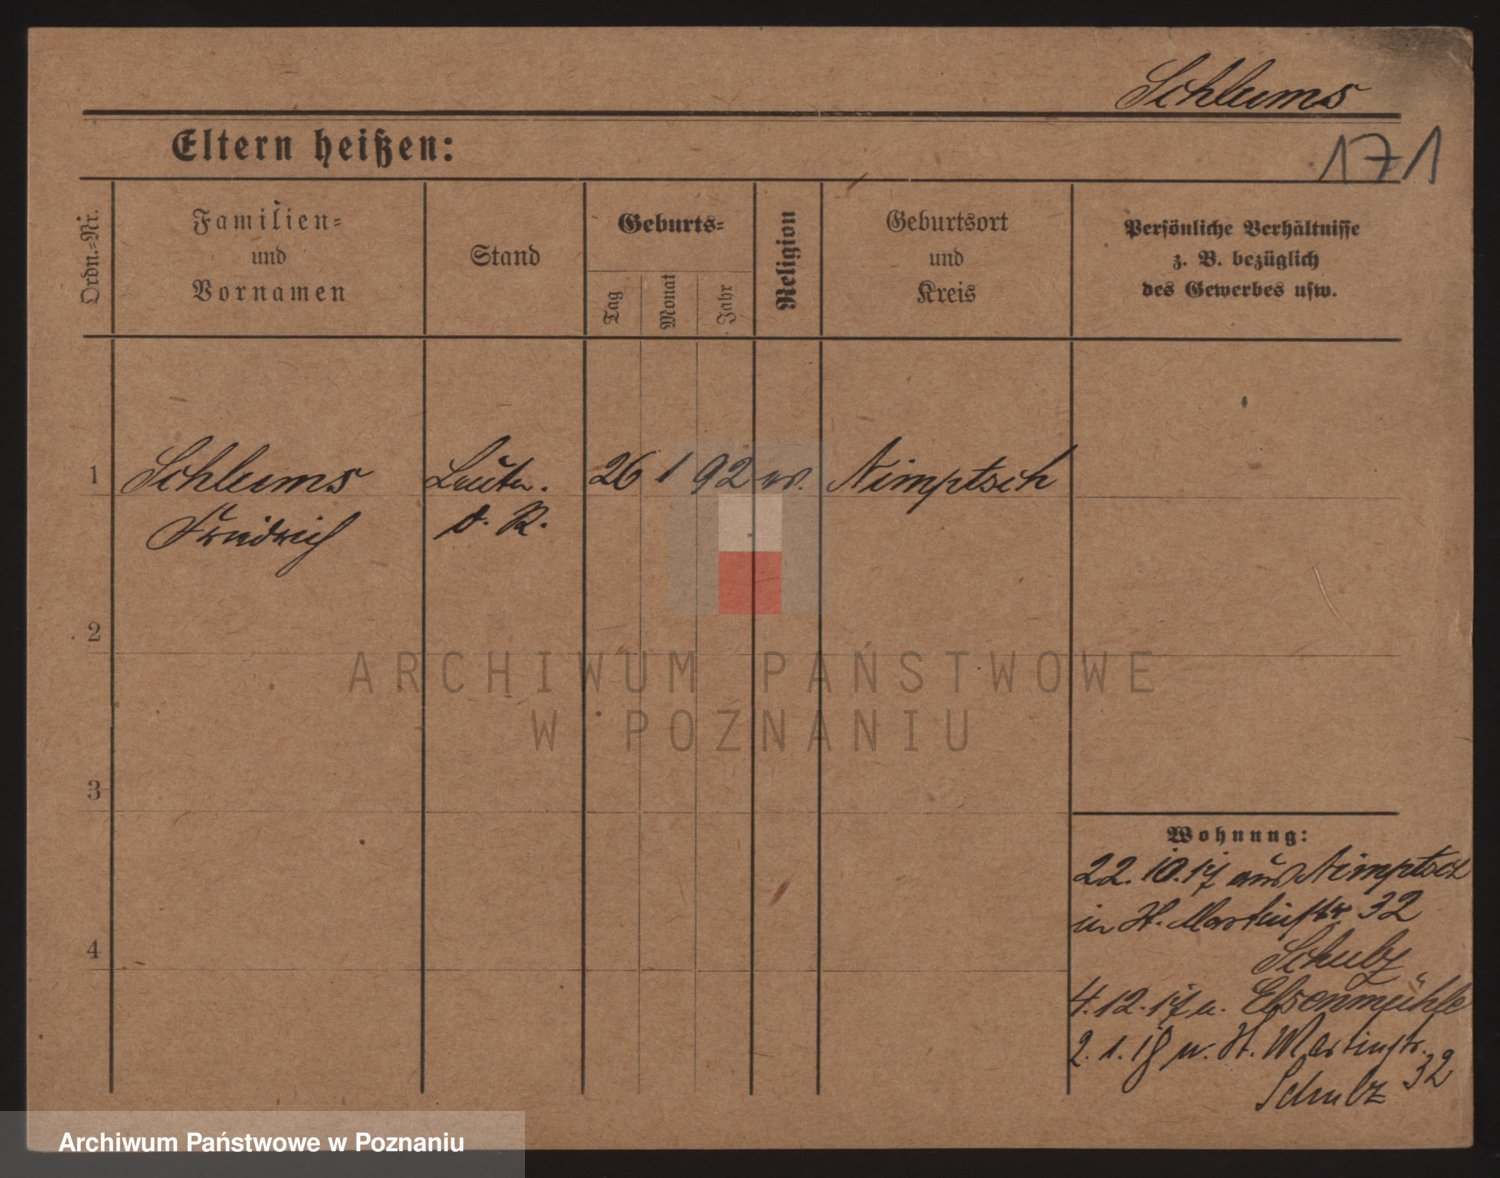 Schlums
171
Eltern heißen:
Ordn.-Nr.
Familien-
und
Vornamen
Stand
Geburts-
Tag
Monat
Jahr
Religion
Geburtsort
und
Kreis
Persönliche Verhältnisse
z. B. bezüglich
des Gewerbes usw.
1
Schlums
Friedrich
Leutn.
d. R.
26 1 92
Nimptsch
2
3
4
Wohnung:
22.10.17 aus Nimptsch
in St. Martinstr 32
Schulz
4.12.17 n. Elsenmühle
2.1.18 n. St. Martinstr.
32
Schulz
ARCHIWUM PAŃSTWOWE
W POZNANIU
Archiwum Państwowe w Poznaniu